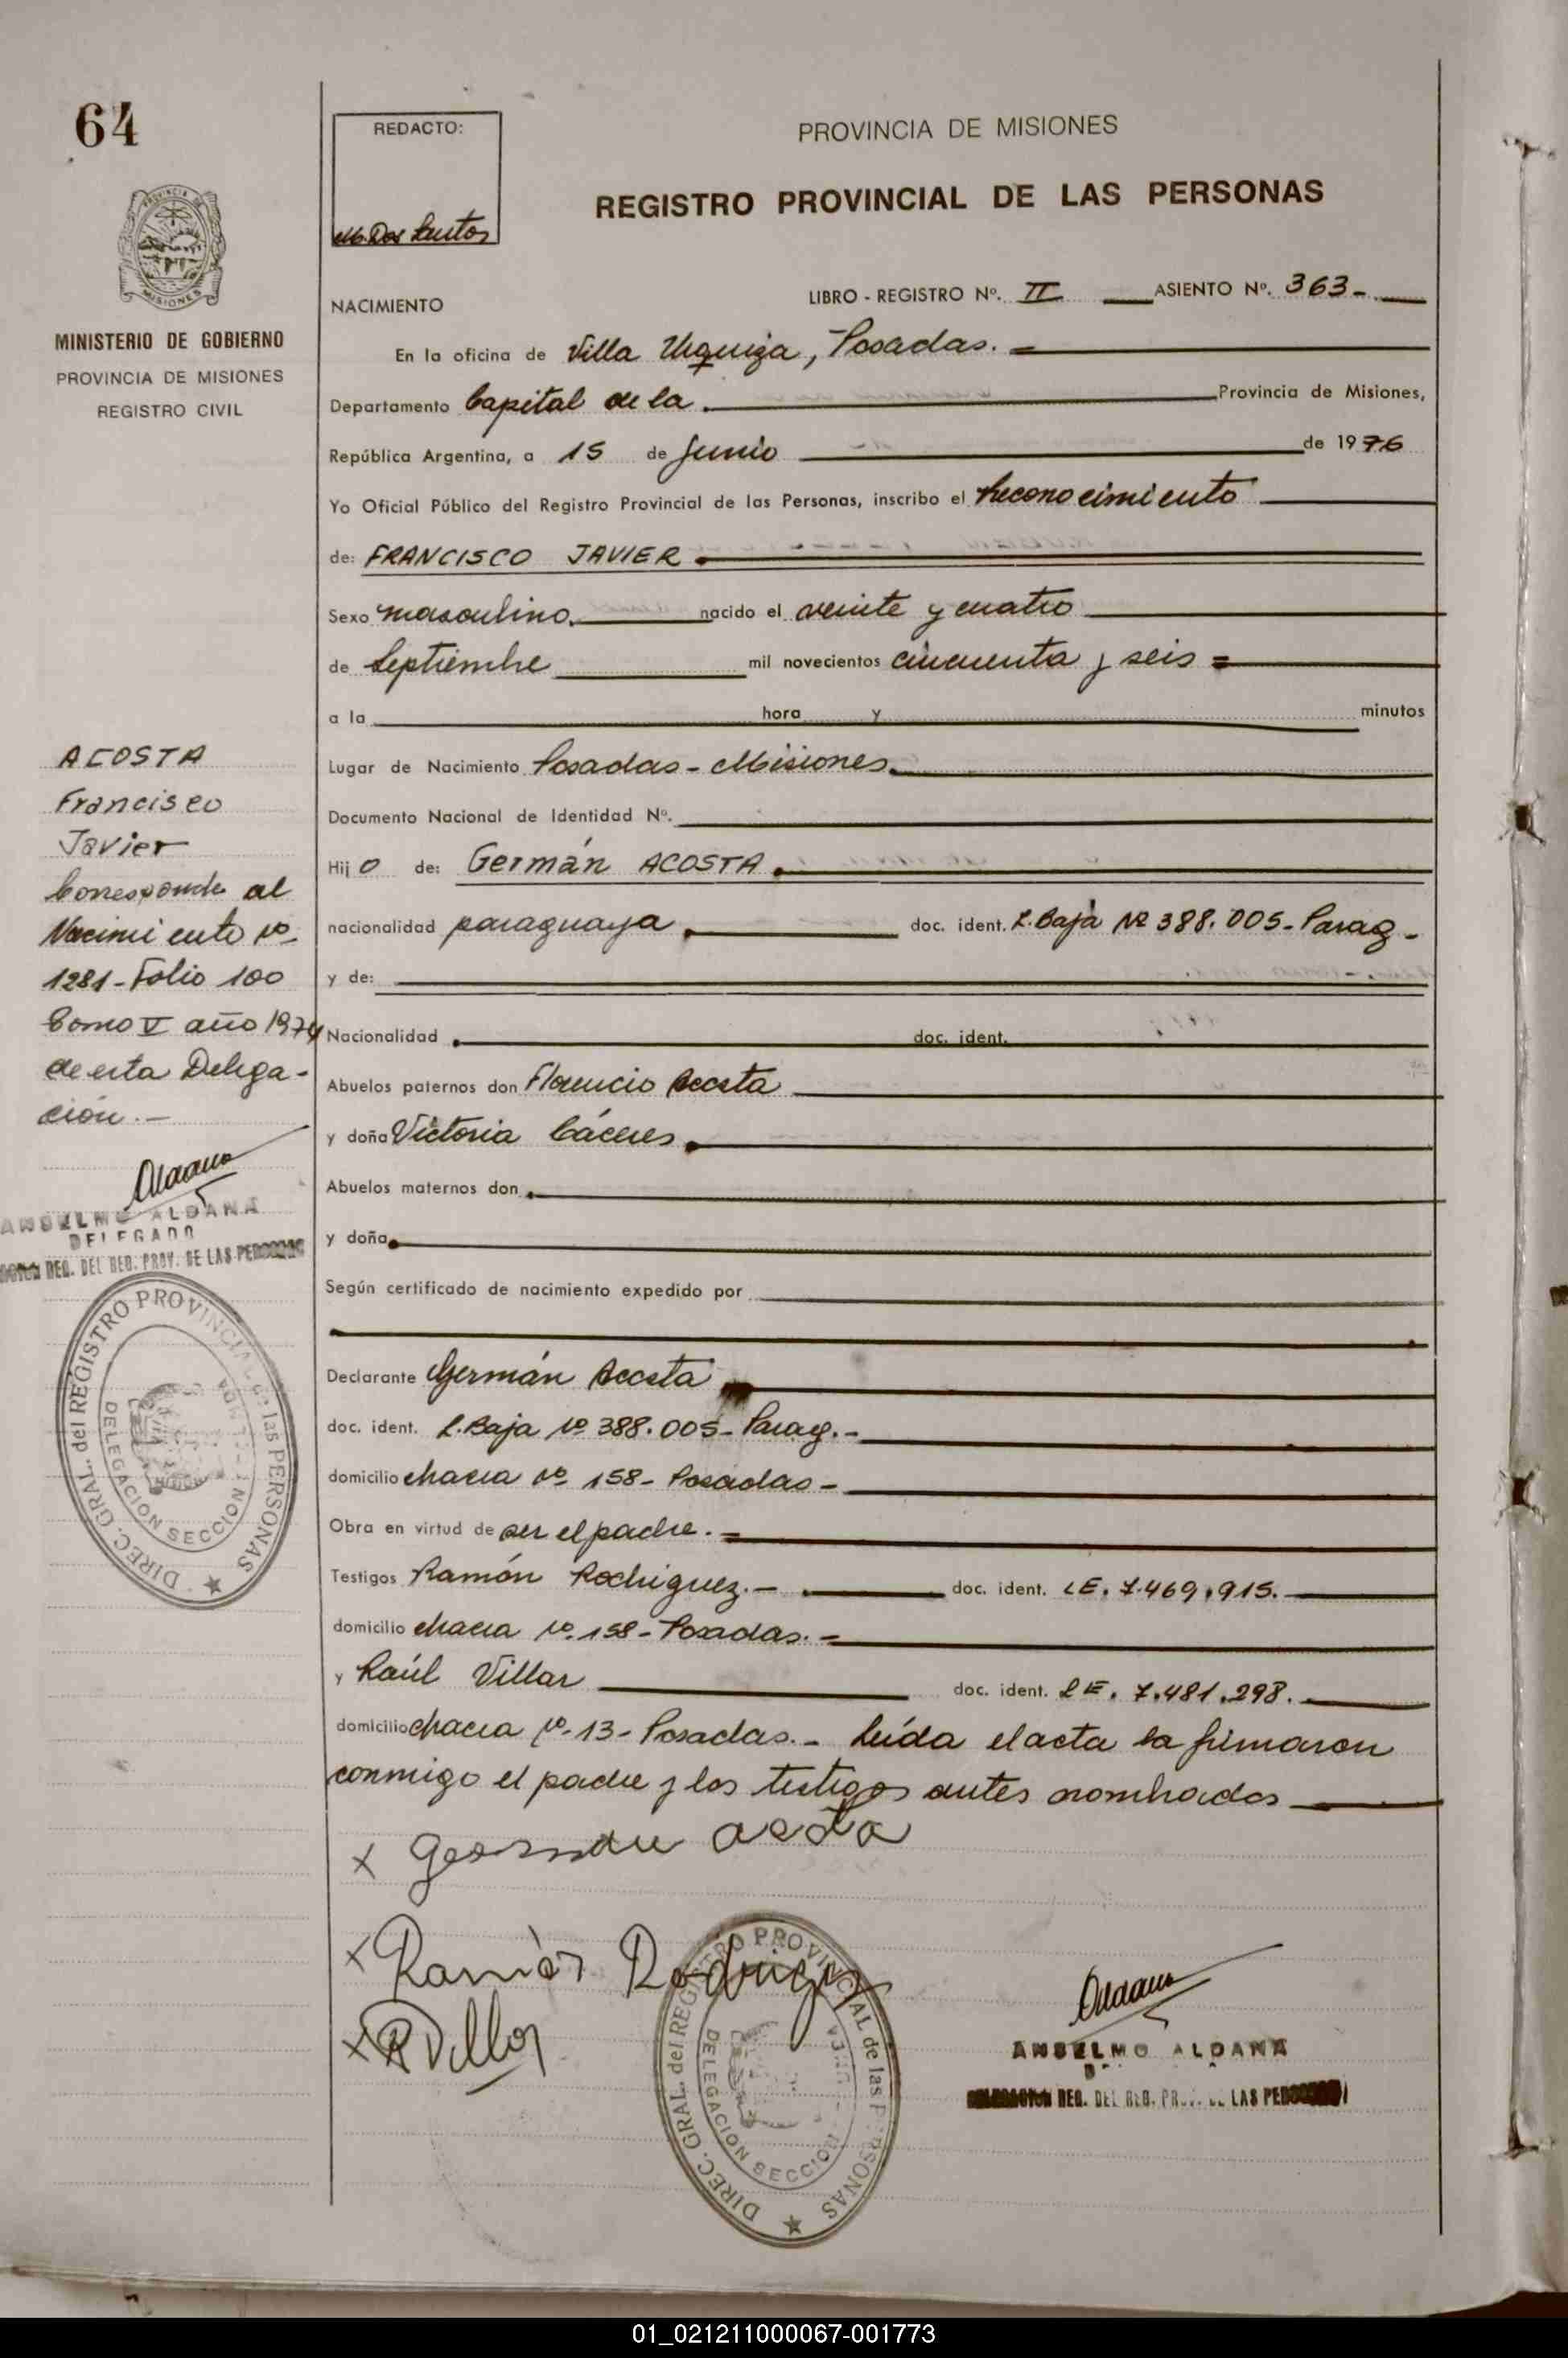 64
REDACTO:
M. Dos Santos
PROVINCIA DE MISIONES
REGISTRO PROVINCIAL DE LAS PERSONAS
PROVINCIA DE
MISIONES
MINISTERIO DE GOBIERNO
PROVINCIA DE MISIONES
REGISTRO CIVIL
NACIMIENTO
LIBRO - REGISTRO Nº. II ASIENTO Nº. 363-
En la oficina de Villa Urquiza, Posadas. =
Departamento Capital de la Provincia de Misiones,
República Argentina, a 15 de Junio de 1976
Yo Oficial Público del Registro Provincial de las Personas, inscribo el Reconocimiento
de: FRANCISCO JAVIER
Sexo masculino. nacido el veinte y cuatro
de Septiembre mil novecientos cincuenta y seis =
a la hora y minutos
Lugar de Nacimiento Posadas - Misiones
Documento Nacional de Identidad Nº.
Hij o de: Germán ACOSTA.
nacionalidad paraguaya doc. ident. L. Baja Nº 388.005- Parag -
y de:
Nacionalidad doc. ident.
Abuelos paternos don Florencio Acosta
y doña Victoria Cáceres
Abuelos maternos don
y doña
Según certificado de nacimiento expedido por
Declarante Germán Acosta
doc. ident. L. Baja Nº 388.005- Parag. -
domicilio chacra Nº 158- Posadas -
Obra en virtud de ser el padre. =
Testigos Ramón Rodriguez. - doc. ident. LE. 7.469.915.
domicilio chacra Nº 158- Posadas. =
y Raúl Villar doc. ident. LE. 7.481.298.
domicilio chacra Nº 13- Posadas. - Leída el acta la firmaron
conmigo el padre y los testigos antes nombrados
ACOSTA
Francisco
Javier
Corresponde al
Nacimiento Nº
1281- Folio 100
Tomo V año 1974
de esta Delega-
ción. -
Aldana
ANSELMO ALDANA
DELEGADO
REG. DEL REG. PROV. DE LAS PERSONAS
DIREC. GRAL. del REGISTRO PROVINCIAL de las PERSONAS
DELEGACION SECCION
x
x Ramón Rodriguez
x R Villar
DIREC. GRAL. del REGISTRO PROVINCIAL de las PERSONAS
DELEGACION SECCION
Aldana
ANSELMO ALDANA
REG. DEL REG. PROV. DE LAS PERSONAS
01_021211000067-001773